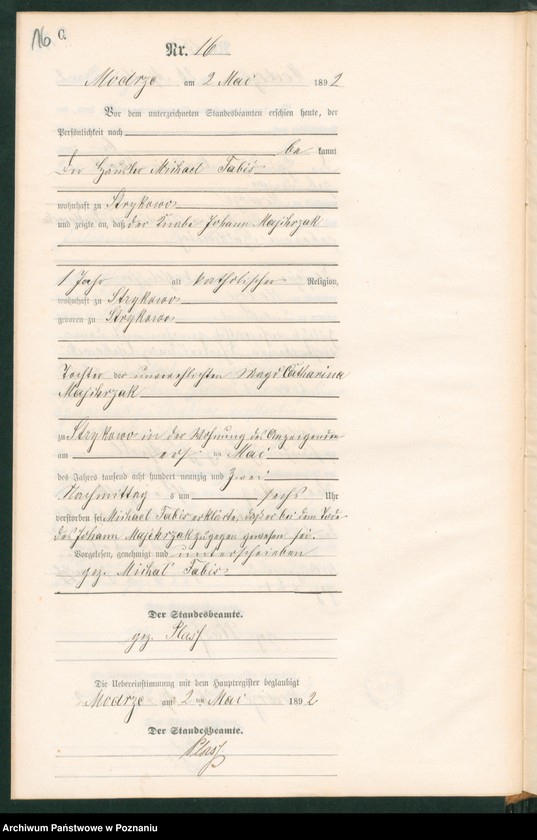 16 C.
Nr. 16
Modrze am 2 Mai 1892
Vor dem unterzeichneten Standesbeamten erschien heute, der
Persönlichkeit nach
be kannt
Der Häusler Michael Tabis
wohnhaft zu Strykowo
und zeigte an, daß der Knabe Johann Majchrzak
1 Jahr alt katholischer Religion,
wohnhaft zu Strykowo
geboren zu Strykowo
Tochter der unverehlichten Magd Catharina
Majchrzak
zu Strykowo in der Wohnung des Anzeigenden
am ersten Mai
des Jahres tausend acht hundert neunzig und zwei
Nachmittags um sechs Uhr
verstorben sei Michael Tabis erklärte, daß er bei dem Tode
des Johann Majchrzak zugegen gewesen sei.
Vorgelesen, genehmigt und unterschrieben
gez. Michal Tabis
Der Standesbeamte.
gez.
Die Uebereinstimmung mit dem Hauptregister beglaubigt
Modrze am 2 ten Mai 1892
Der Standesbeamte.
Archiwum Państwowe w Poznaniu